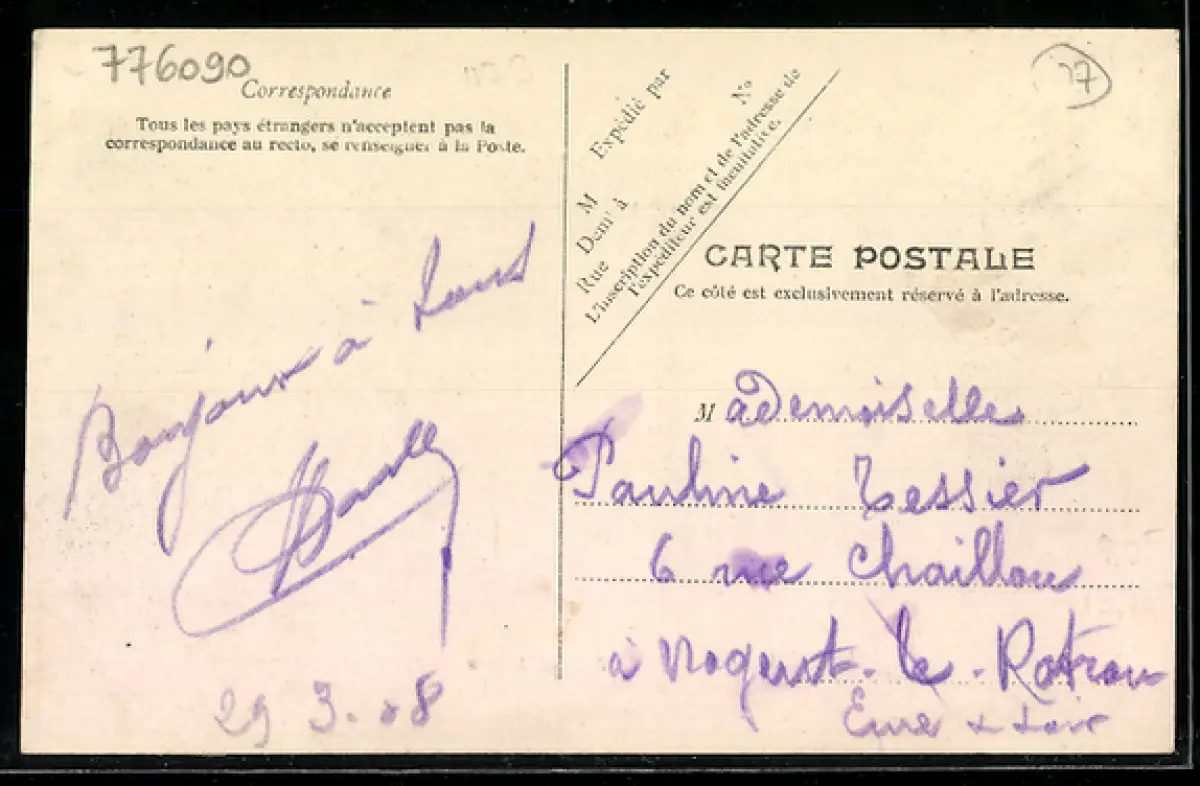 776090
Correspondance
Tous les pays étrangers n'acceptent pas la
correspondance au recto, se renseigner à la Poste.
Bonjour à tous
29 3. 08
Expédié par
M
N°
Dem' à
Rue
L'inscription du nom et de l'adresse de
l'expéditeur est facultative.
37
CARTE POSTALE
Ce côté est exclusivement réservé à l'adresse.
Mademoiselle
Pauline Tessier
6 rue Chaillou
à Nogent-le-Rotrou
Eure & Loir